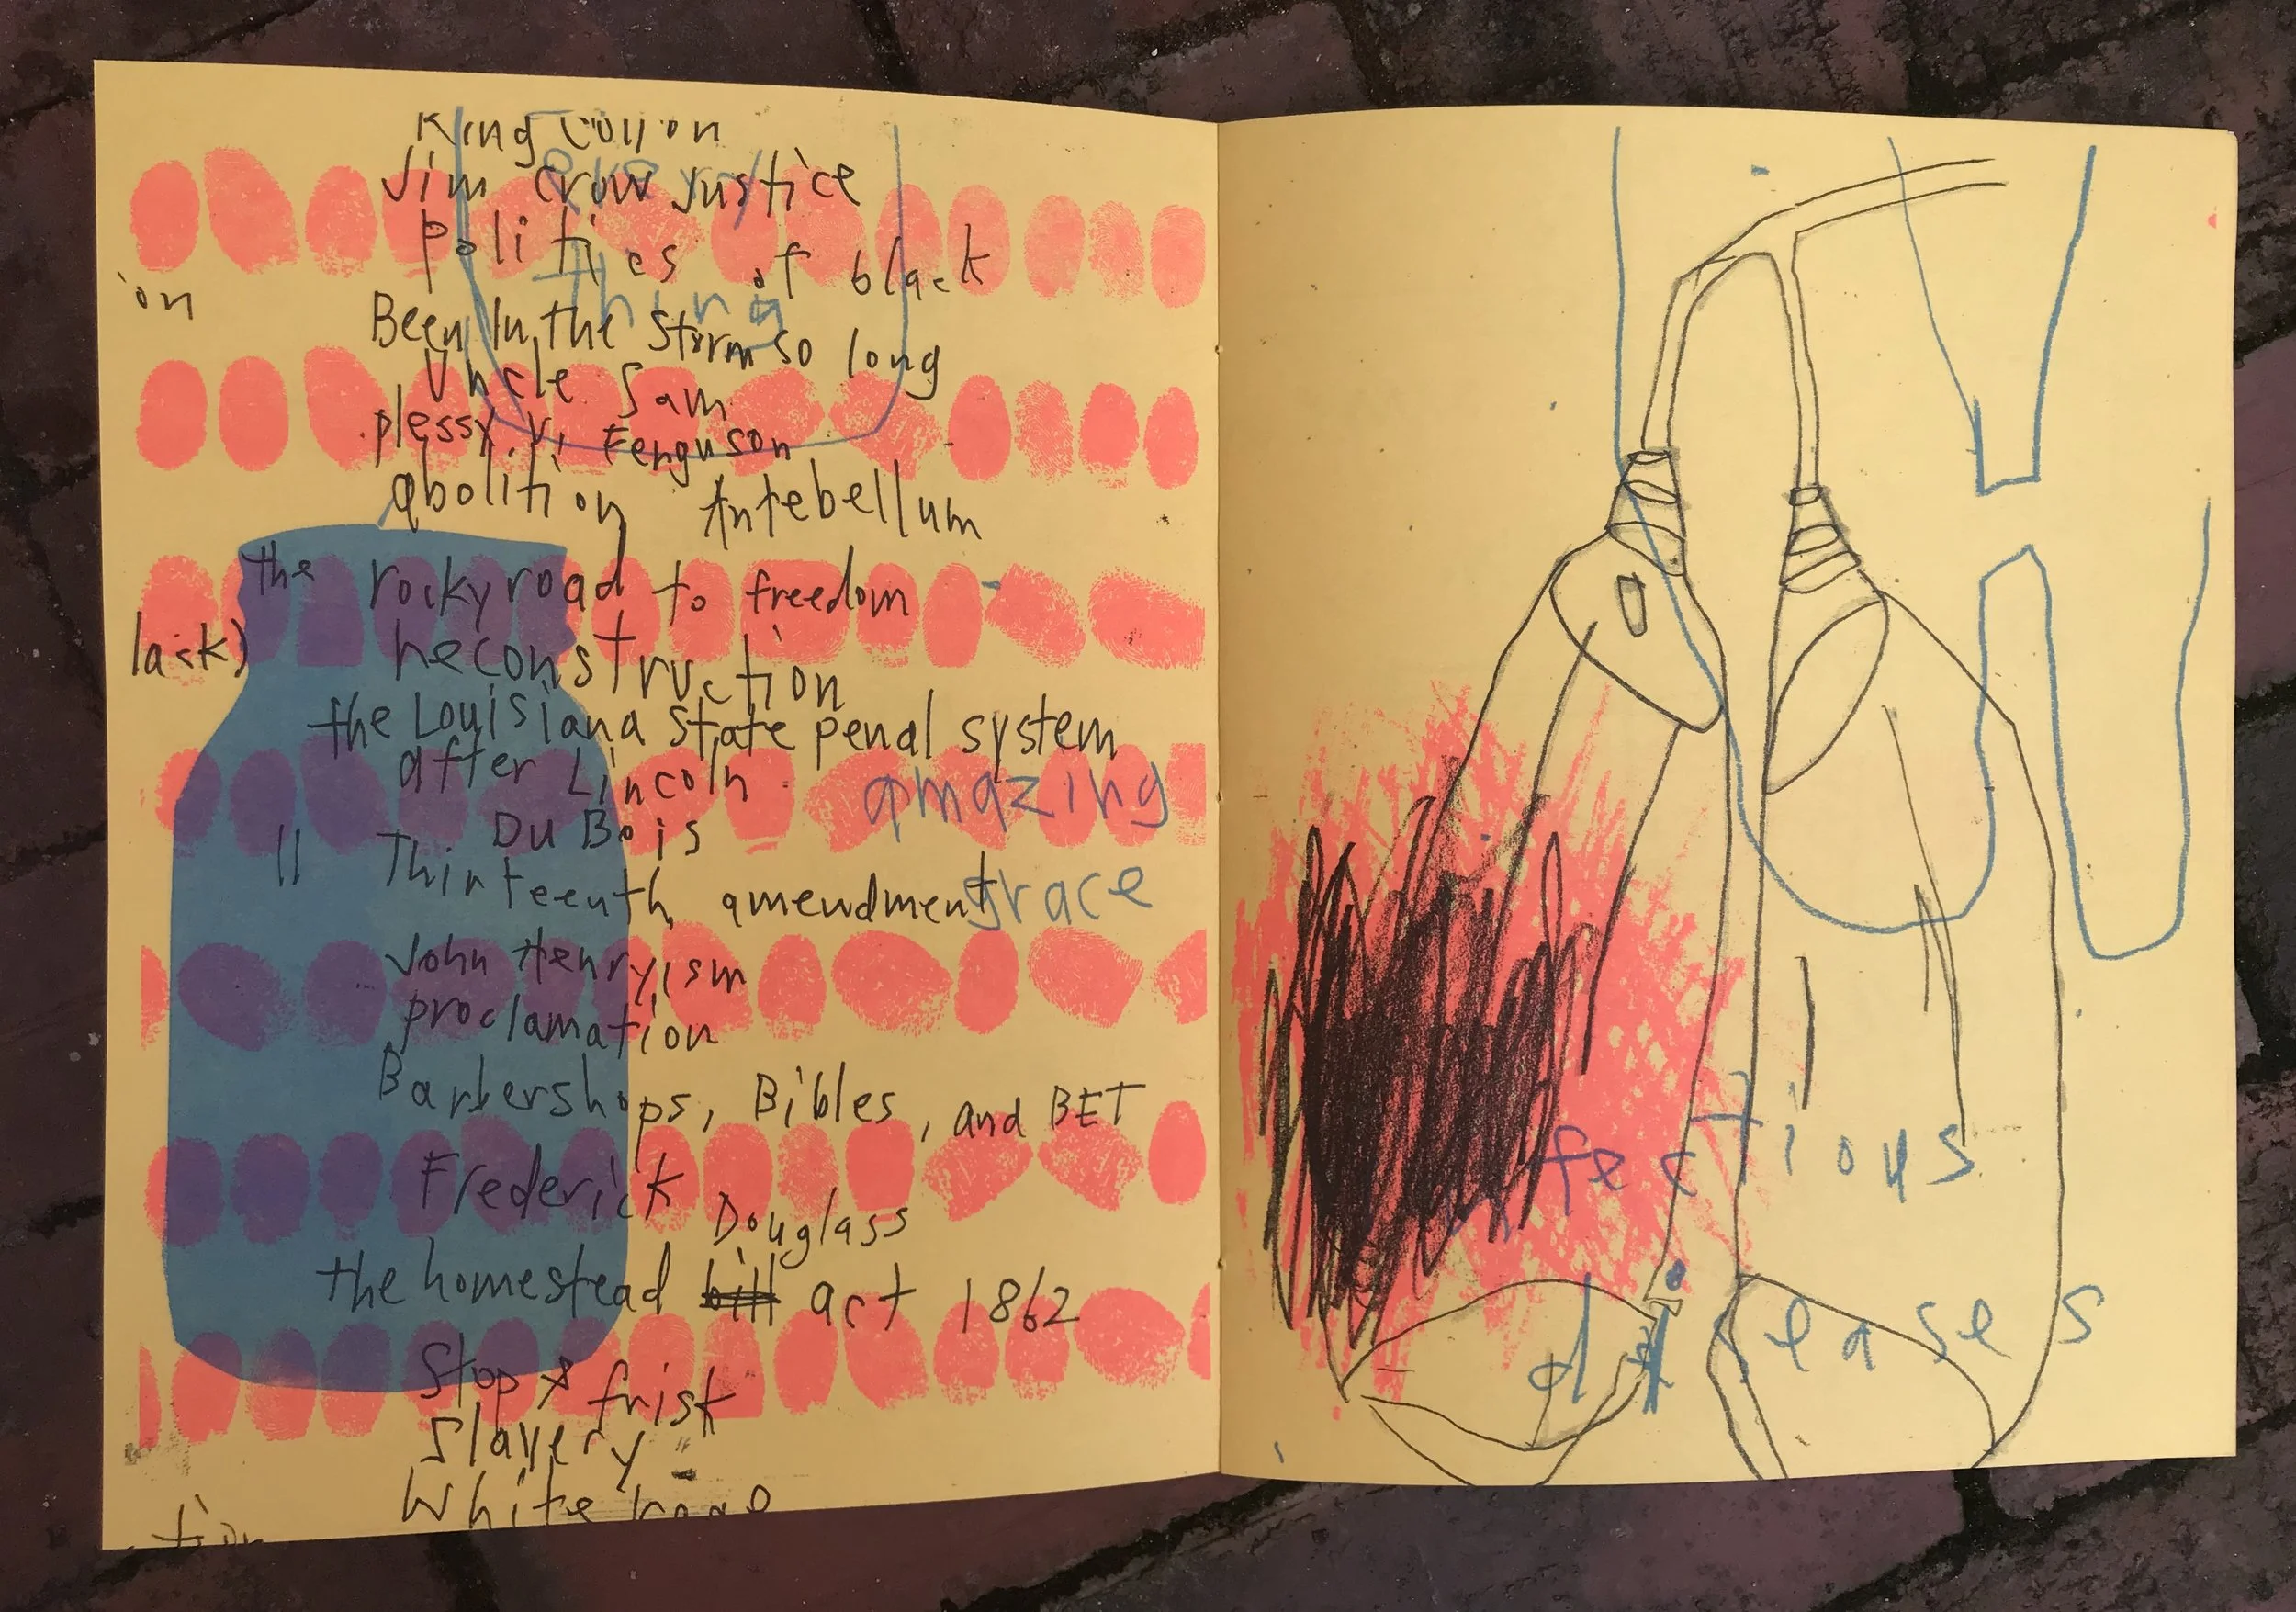 King Cotton
Jim Crow Justice
politics of black
thing
'on
Been In the Storm so long
Uncle Sam
plessy v. Ferguson
abolition Antebellum
the rocky road to freedom
lack)
Reconstruction
the Louisiana State penal system
after Lincoln
amazing
Du Bois
11 Thirteenth amendment
grace
John Henryism
proclamation
Barbershops, Bibles, and BET
Frederick
Douglass
the homestead bill act 1862
Stop & frisk
Slavery
White rage
tion
fectious
diseases